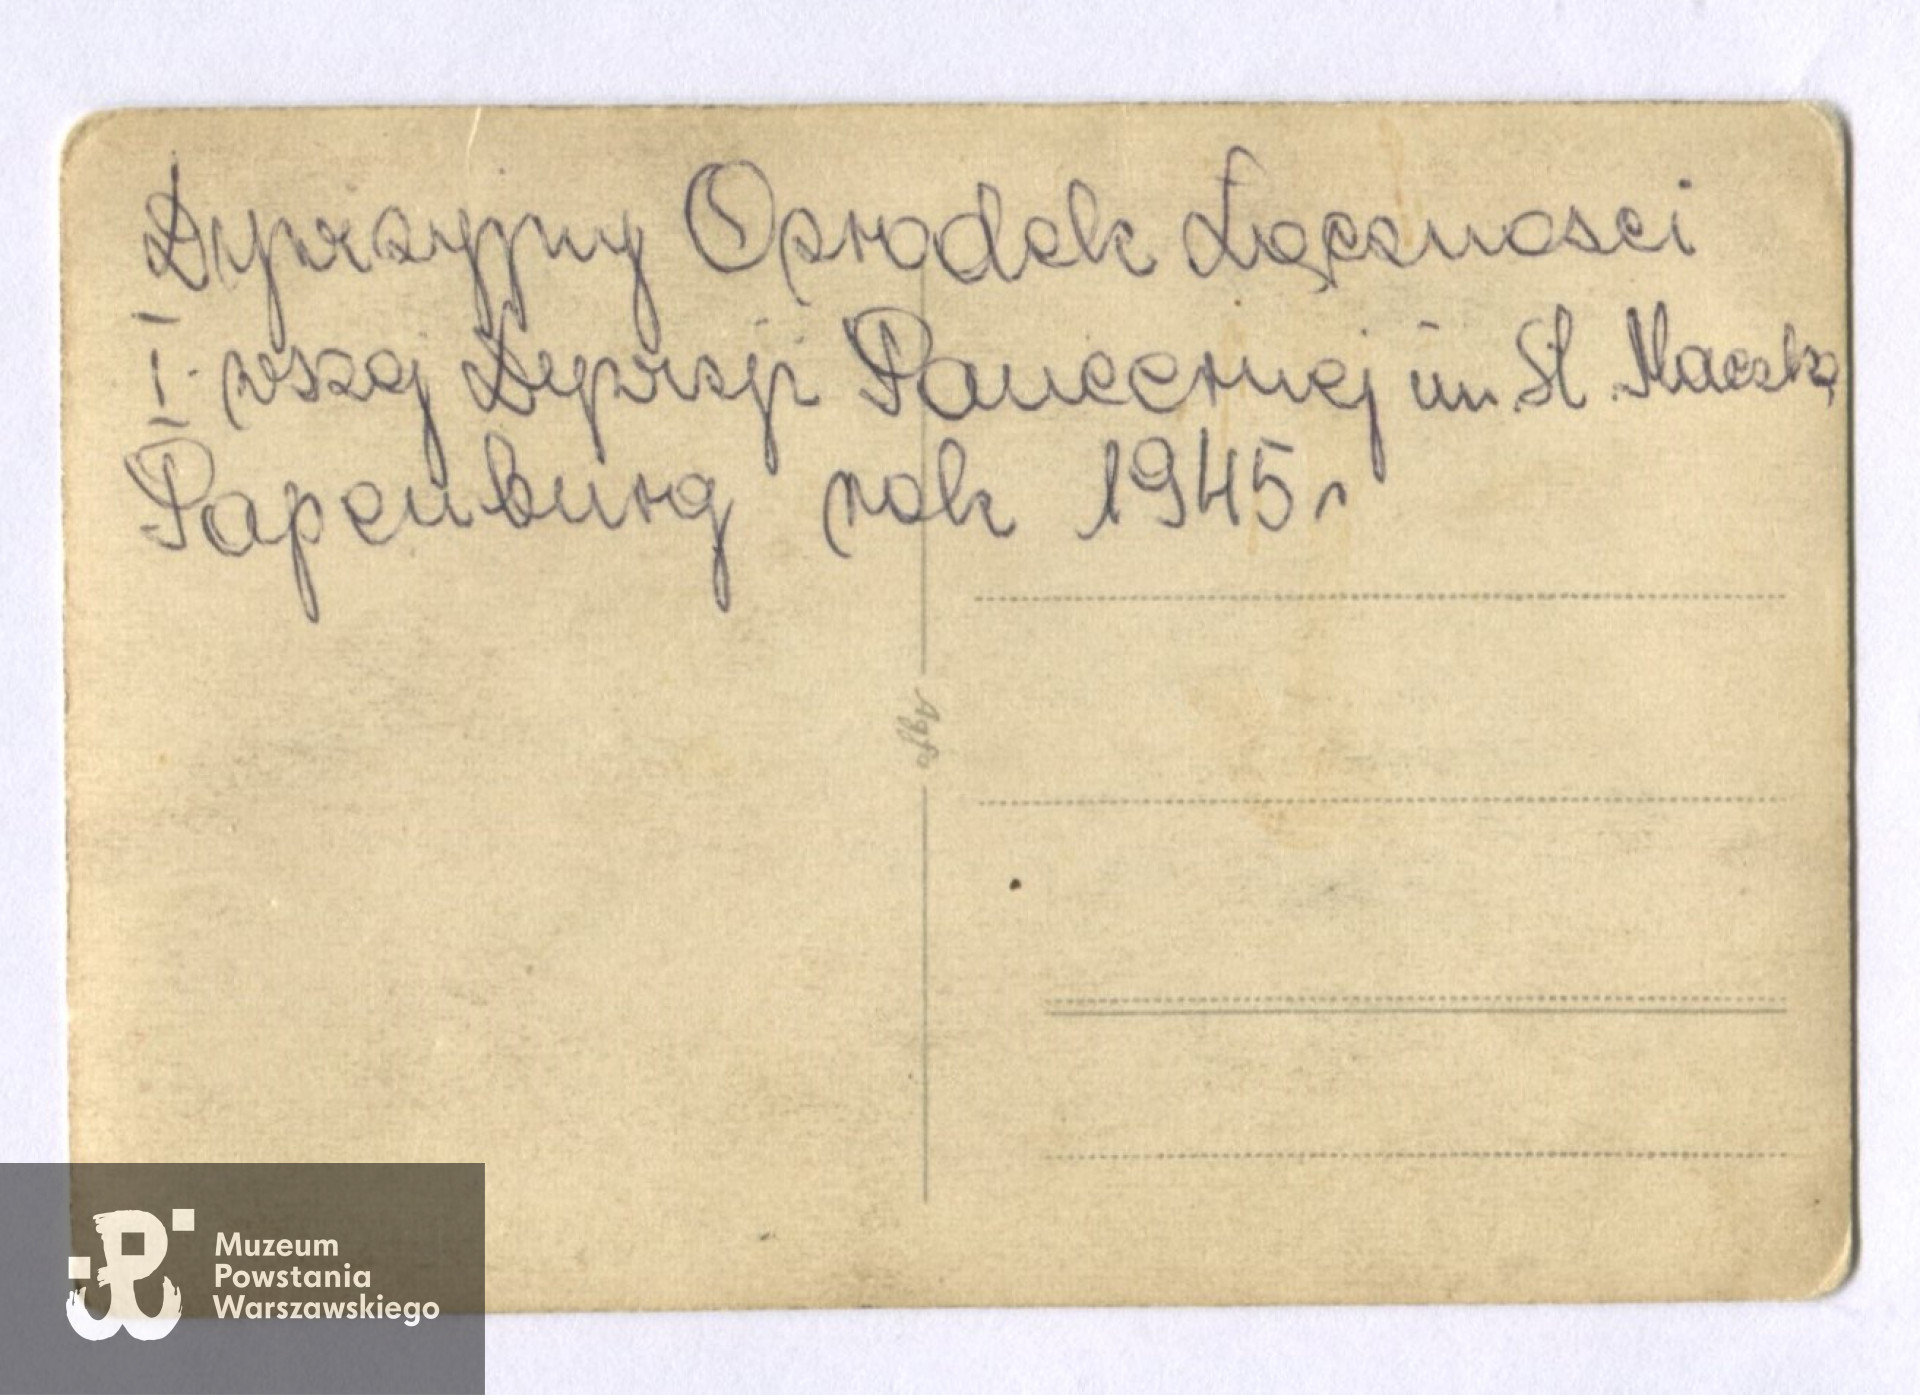 Dywizyjny Osrodek Łącznosci
I. wszej Dywizji Pancernej im. St. Maczka
Papenburg rok 1945 r
Agfa
Muzeum
Powstania
Warszawskiego